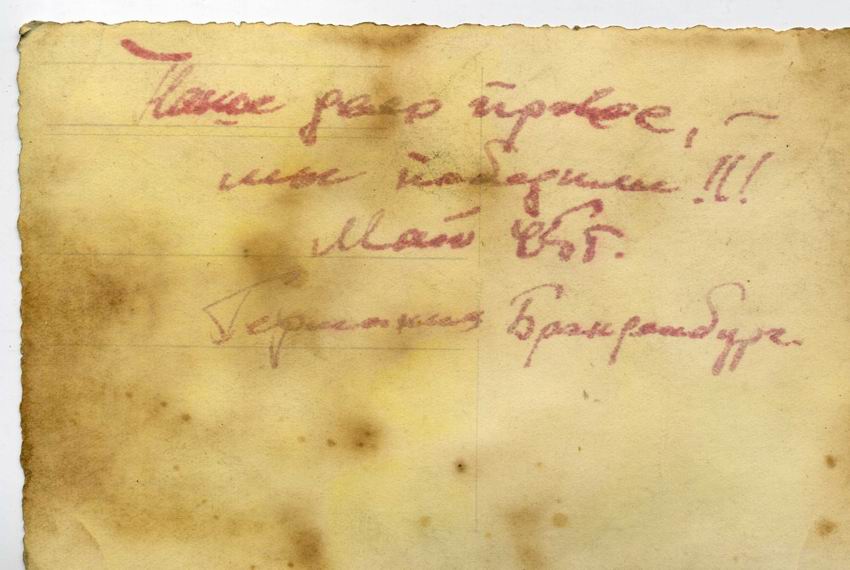 Наше дело правое, –
мы победили!!!
Май 45г.
Германия Бранденбург.